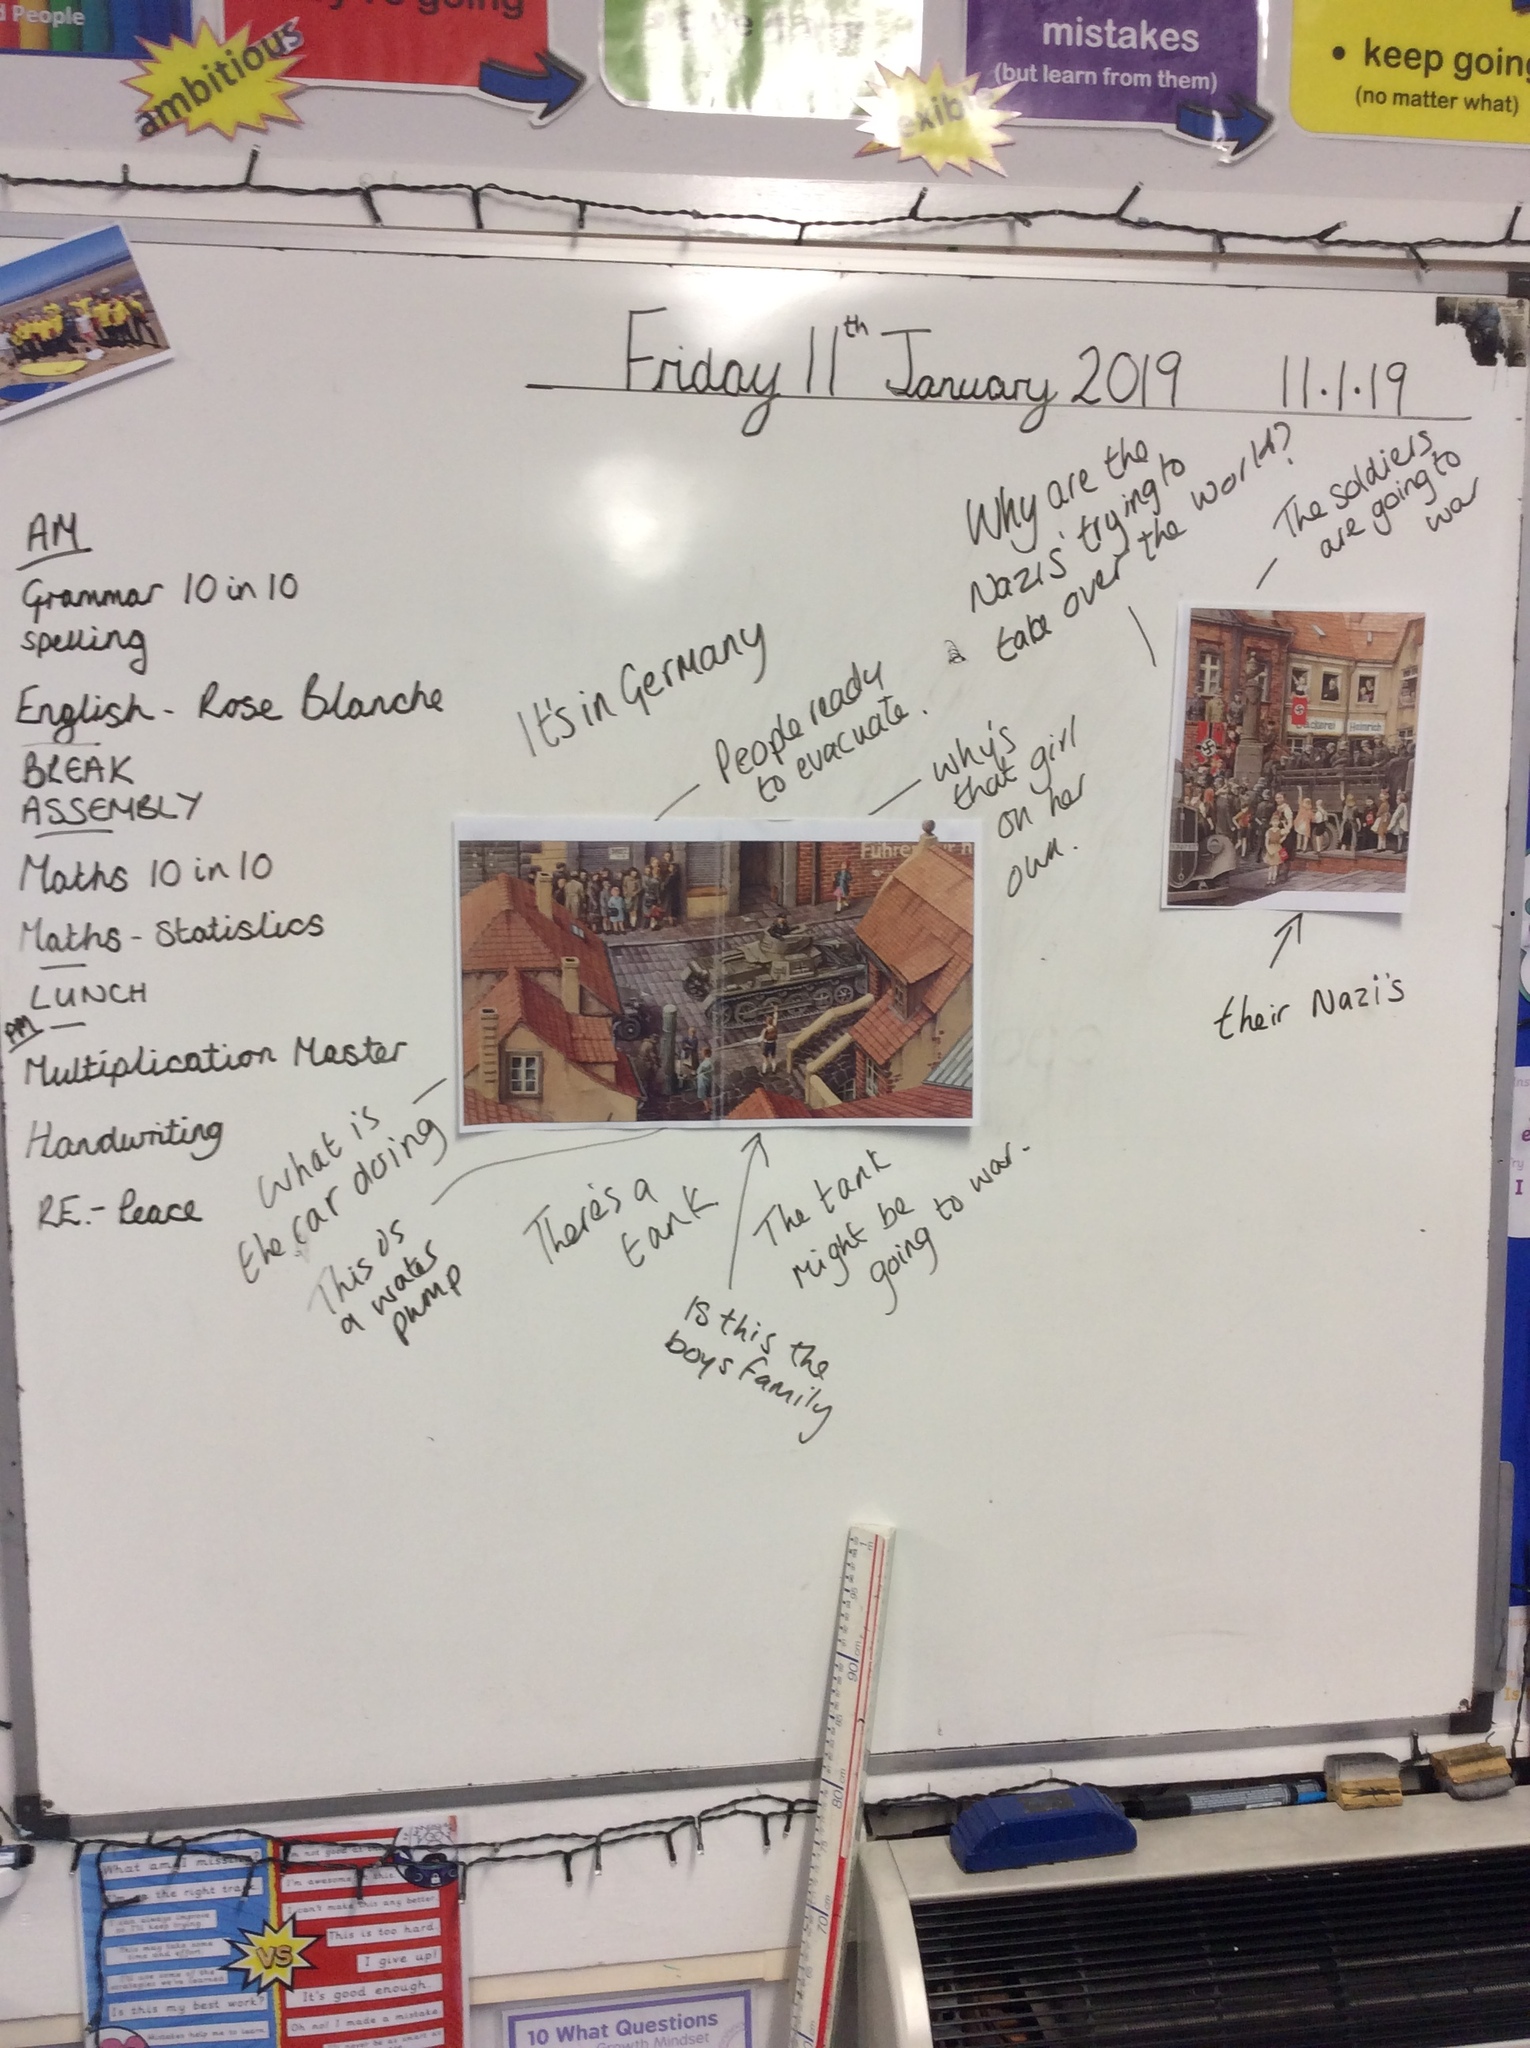 d People
going
mistakes
(but learn from them)
• keep going
(no matter what)
ambitious
Friday 11th January 2019 11.1.19
AM
Grammar 10 in 10
spelling
English - Rose Blanche
BREAK
ASSEMBLY
Maths 10 in 10
Maths - Statistics
LUNCH
PM
Multiplication Master
Handwriting
RE - Peace
It's in Germany
People ready
to evacuate.
Why are the
Nazis' trying to
take over the world?
The soldiers
are going to
war
why's
that girl
on her
own.
Bäckerei Heinrich
their Nazi's
What is
the car doing
This is
a water
pump
There's a
tank
The tank
might be
going to war.
Is this the
boys family
What am I missing?
I'm on the right track.
I can always improve
so I'll keep trying
This may take some
time and effort.
Is this my best work?
Mistakes help me to learn.
VS
I'm awesome at this.
I can't make this any better.
This is too hard.
I give up!
It's good enough.
Oh no! I made a mistake
10 What Questions
Growth Mindset
90
80
70